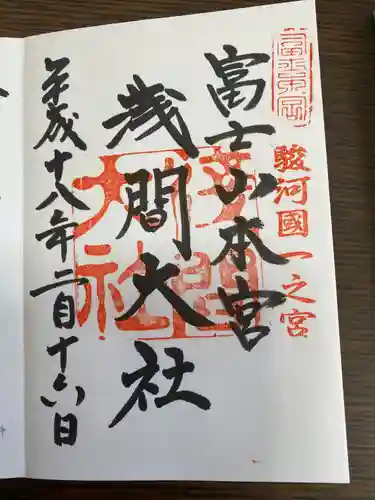 駿河國一之宮
富士山本宮
浅間大社
平成十八年二月十六日
浅間
大社